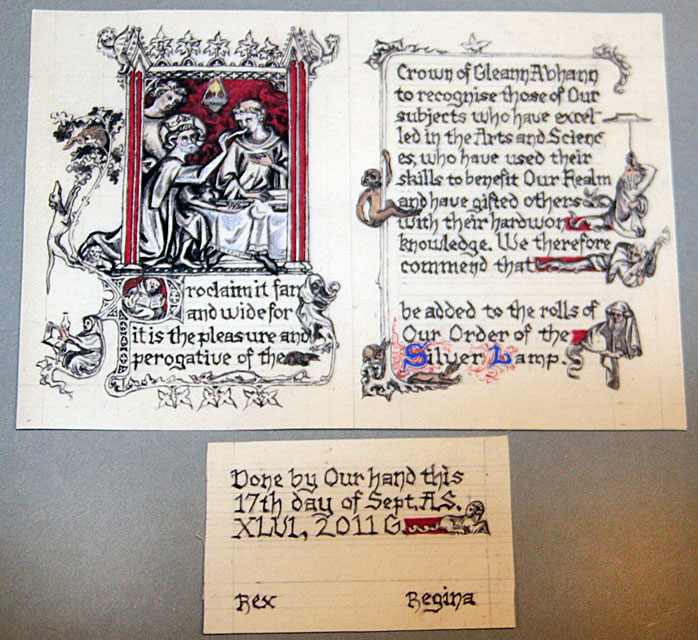 Proclaim it far
and wide for
it is the pleasure and
perogative of the
Crown of Gleann Abhann
to recognise those of Our
subjects who have excel-
led in the Arts and Scienc
es, who have used their
skills to benefit Our Realm
and have gifted others
with their hardwon
knowledge. We therefore
commend that
be added to the rolls of
Our Order of the
Silver Lamp.
Done by Our hand this
17th day of Sept. A.S.
XLVI, 2011 G.
Rex Regina